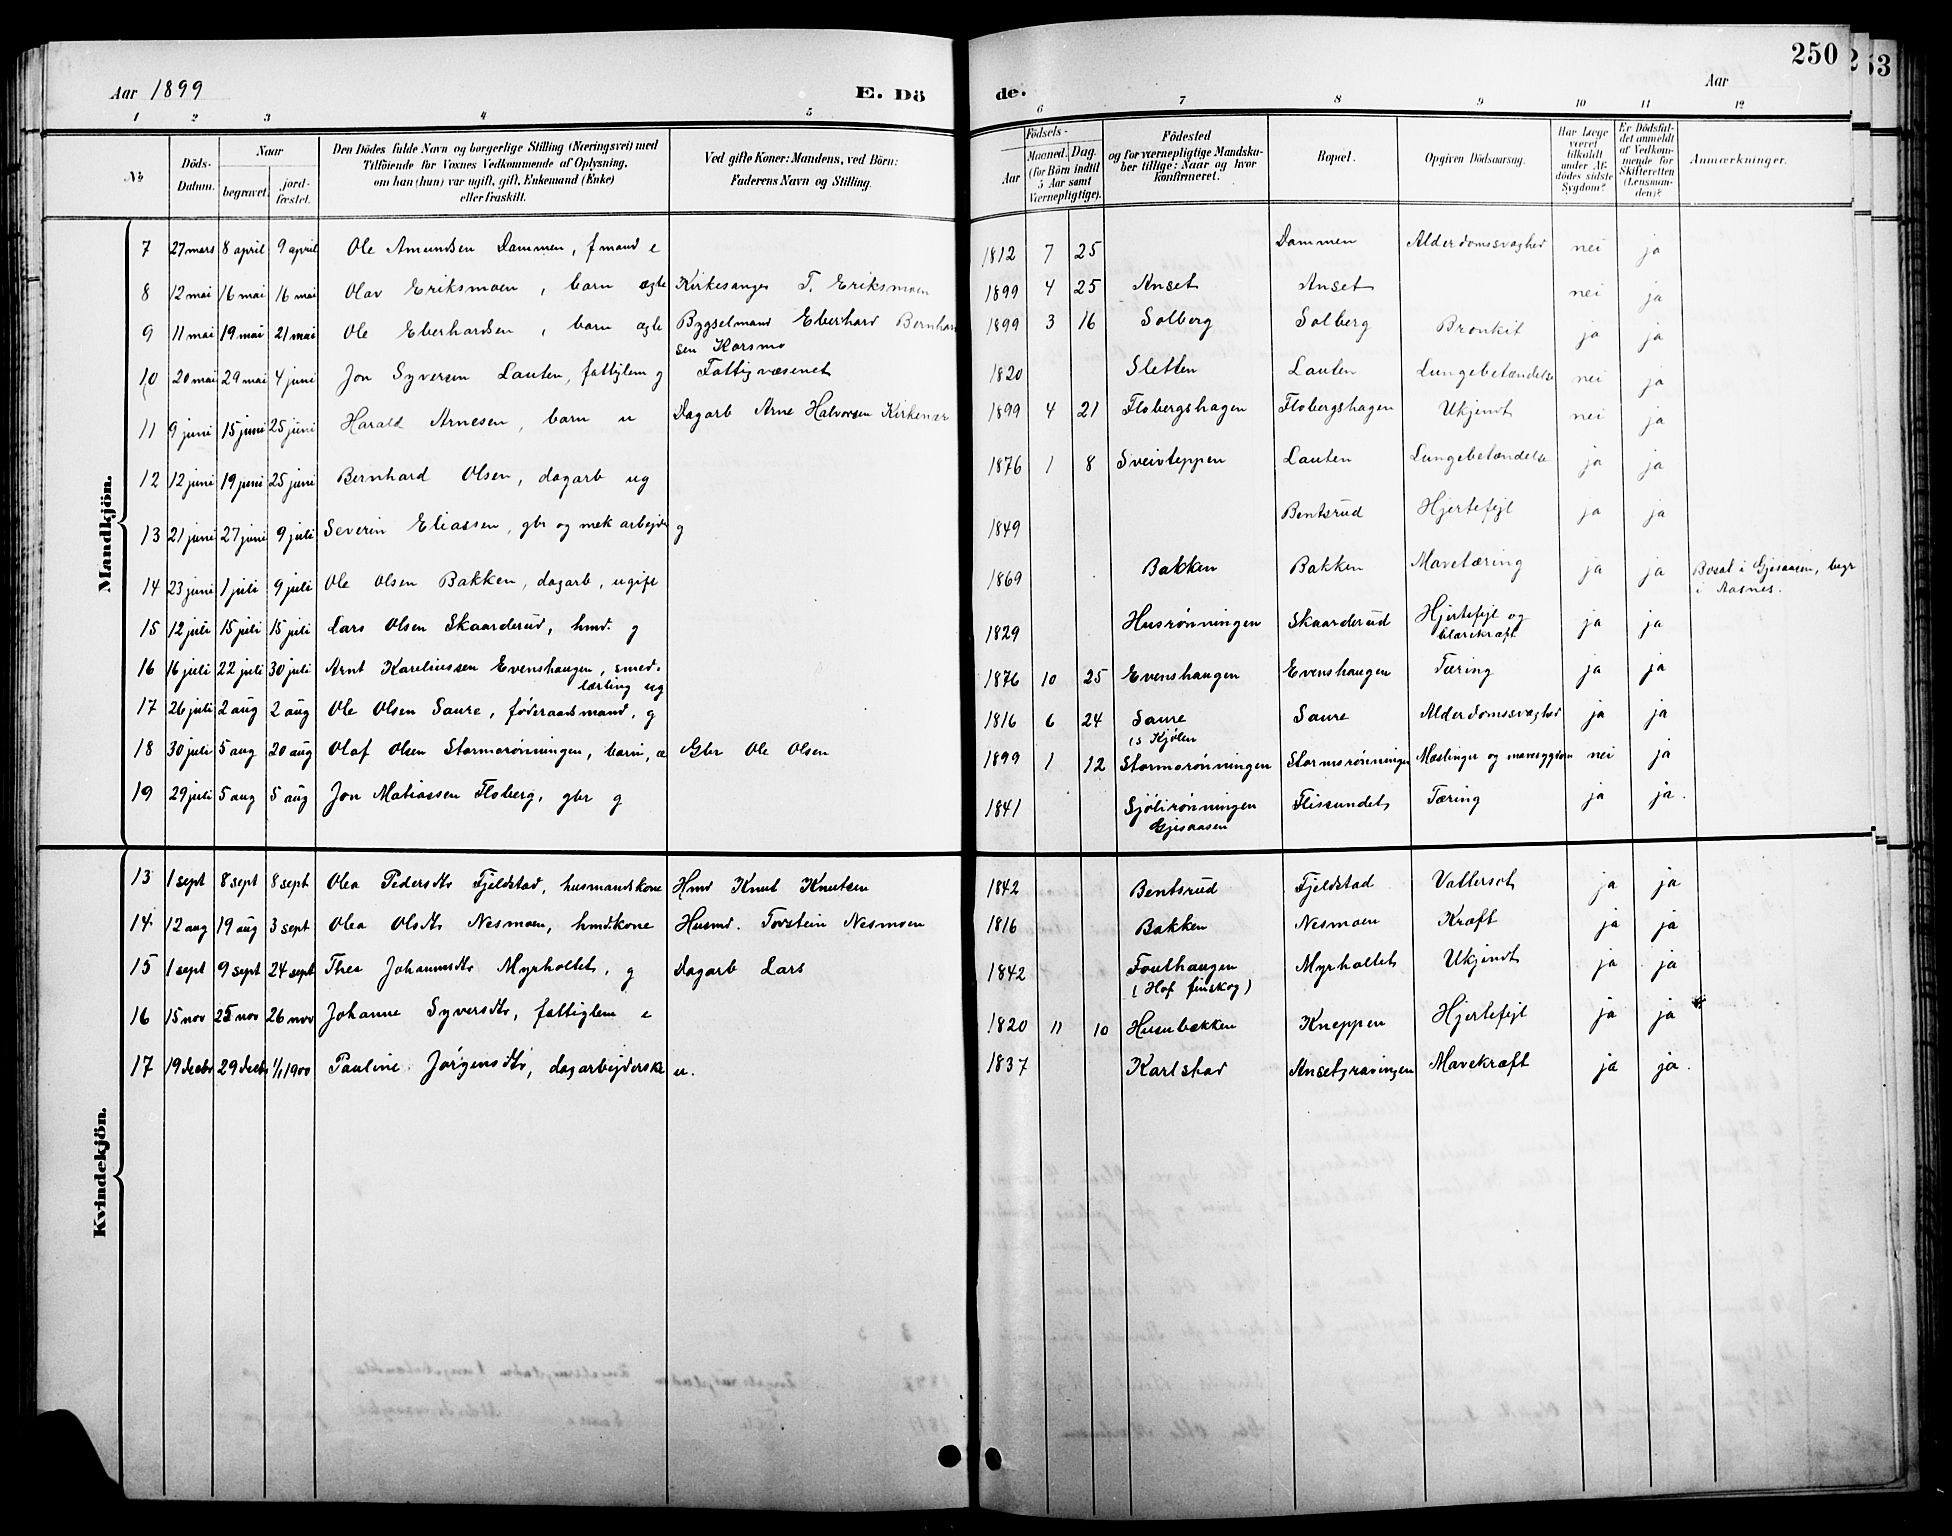 250
Aar 1899 E. Dö de. Aar
1 2 3 4 5 6 7 8 9 10 11 12
№
Döds-Datum.
Naar
begravet.
jord-fæstet.
Den Dödes fulde Navn og borgerlige Stilling (Næringsvei) med
Tilföiende for Voxnes Vedkommende af Oplysning,
om han (hun) var ugift, gift, Enkemand (Enke)
eller fraskilt.
Ved gifte Koner: Mandens, ved Börn:
Faderens Navn og Stilling.
Födsels-
Aar
Maaned. Dag.
(for Börn indtil
5 Aar samt
Værnepligtige).
Födested
og for værnepligtige Mandska-
ber tillige: Naar og hvor
konfirmeret.
Bopæl.
Opgiven Dödsaarsag.
Har Læge
været
tilkaldt
under Af-
dödes sidste
Sygdom?
Er Dödsfal-
det anmeldt
af Vedkom-
mende for
Skifteretten
(Lensman-
den)?
Anmærkninger.
Mandkjön.
7 27 mars 8 april 9 april Ole Amundsen Dammen, fmand e 1812 7 25 Dammen Alderdomssvaghed nei ja
8 12 mai 16 mai 16 mai Olav Eriksmoen, barn ægte Kirkesanger T. Eriksmoen 1899 4 25 Anset Anset nei ja
9 11 mai 19 mai 21 mai Ole Eberhardsen, barn ægte Bygselmand Eberhard Bernhard
sen Korsmo 1899 3 16 Solberg Solberg Bronkit ja ja
10 20 mai 29 mai 4 juni Jon Syversen Lauten, fattiglem g Fattigvæsenet 1820 Sletten Lauten Lungebetændelse nei ja
11 9 juni 15 juni 25 juni Harald Arnesen, barn u Dagarb Arne Halvorsen Kirkenær 1899 4 21 Flobergshagen Flobergshagen Ukjendt nei ja
12 12 juni 19 juni 25 juni Bernhard Olsen, dagarb ug 1876 1 8 Sveivteppen Lauten Lungebetændelse ja ja
13 21 juni 27 juni 9 juli Severin Eliassen, gbr og mek arbejder g 1849 Bentsrud Hjertefejl ja ja
14 23 juni 1 juli 9 juli Ole Olsen Bakken, dagarb, ugift 1869 Bakken Bakken Mavetæring ja ja Bosat i Gjesaasen, begr
i Aasnes.
15 12 juli 15 juli 15 juli Lars Olsen Skaarderud, hmd. g 1829 Husrønningen Skaarderud Hjertefejl og
blærekræft ja ja
16 16 juli 22 juli 30 juli Arnt Kareliussen Evenshaugen, smed-
lærling ug 1876 10 25 Evenshaugen Evenshaugen Tæring ja ja
17 26 juli 2 aug 2 aug Ole Olsen Saure, føderaadsmand, g 1816 6 24 Saure
(s Kjölen Saure Alderdomssvaghed ja ja
18 30 juli 5 aug 20 aug Olaf Olsen Stormorønningen, barn, æ Gbr Ole Olsen 1899 1 12 Stormorønningen Stormorønningen Mæslinger og mavesygdom nei ja
19 29 juli 5 aug 5 aug Jon Matiassen Floberg, gbr g 1841 Sjölirønningen
Gjesaasen Flissundet Tæring ja ja.
Kvindekjön.
13 1 sept 8 sept 8 sept Olea Pedersdtr Fjeldstad, husmandskone Hmd Knut Knutsen 1842 Bentsrud Fjeldstad Vattersot ja ja
14 12 aug 19 aug 3 sept Olea Olsdtr Nesmoen, hmdskone Husmd. Torstein Nesmoen 1816 Bakken Nesmoen Kræft ja ja
15 1 sept 9 sept 24 sept Thea Johannesdtr Myrholtet, g Dagarb Lars 1842 Fouthaugen
(Hof finskog) Myrholtet Ukjendt ja ja
16 15 nov 25 nov 26 nov Johanne Syversdtr, fattiglem e 1820 11 10 Husubakken Kneppen Hjertefejl ja ja
17 19 decbr 29 decbr 1/1 1900 Pauline Jörgensdtr, dagarbejderske u. 1837 Karlstad Ansetgravingen Mavekræft ja ja.